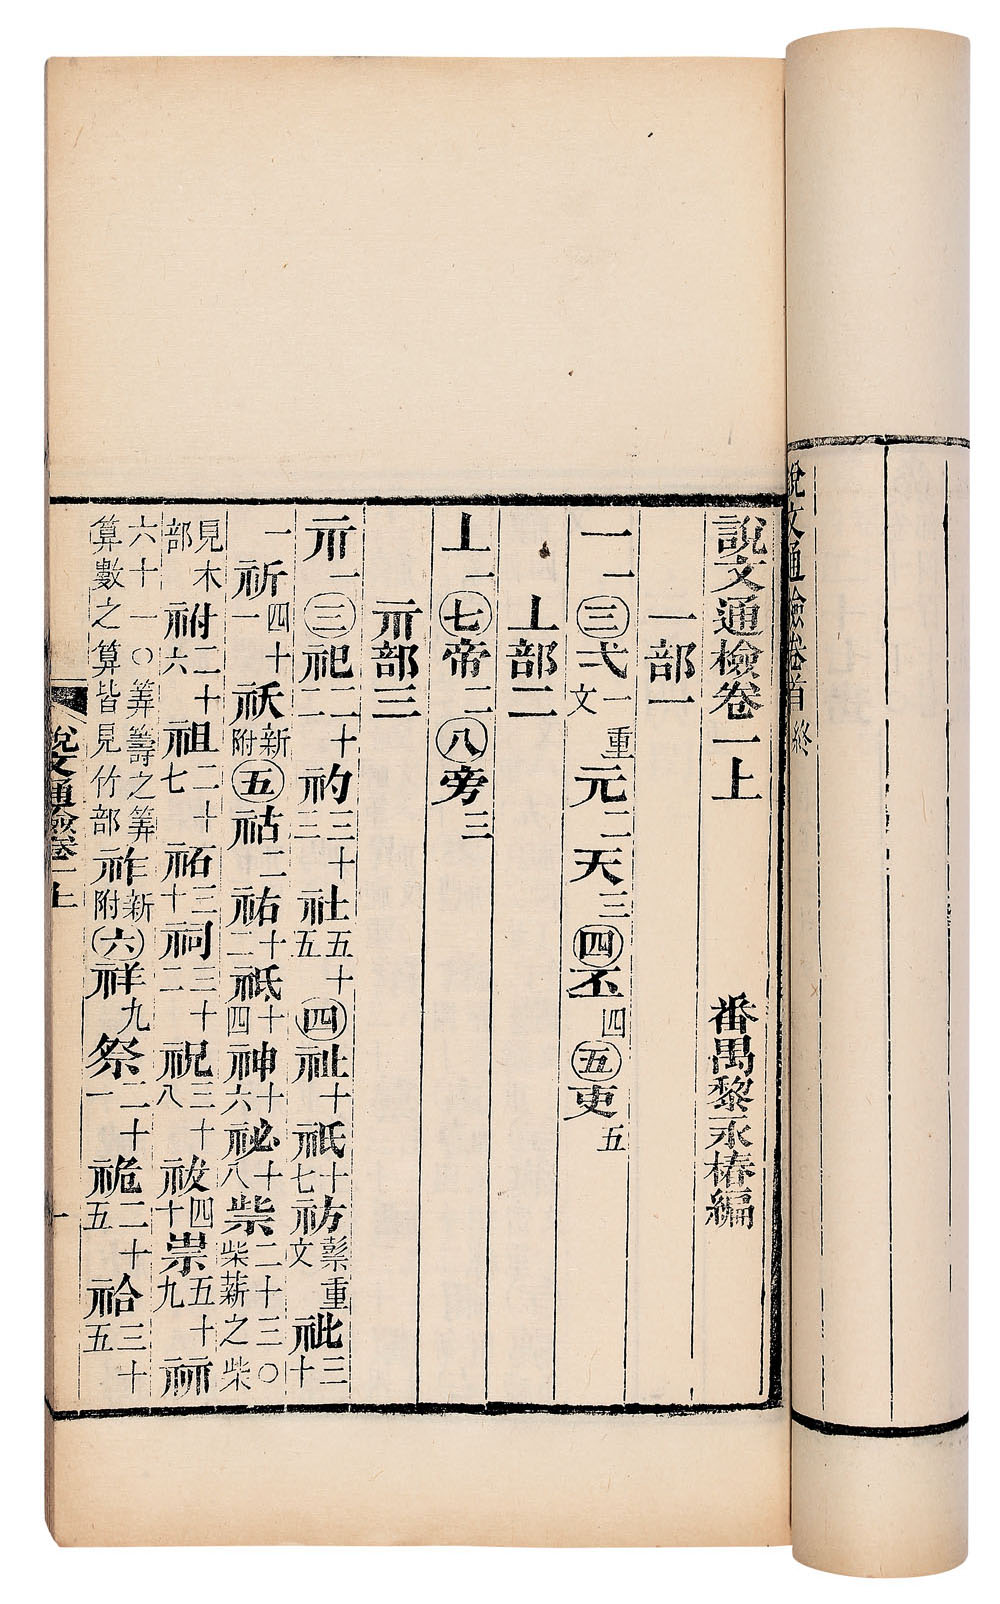 說文通檢卷首 終
說文通檢卷一上 番禺黎永椿編
一部一
一一㊂弌一重文元二天三㊃丕四㊄吏五
丄部二
丄一㊆帝二㊇旁三
示部三
示一㊂祀二十二礿三十三社五十五㊃祉十祇十七祊重文三十
一祈四十一祆新附㊄祜二祐十二祗十四神十六祕十八祡二十三〇柴薪之柴
見木部祔二十六祖二十七祏三十祠三十二祝三十八祓四十祟五十九祘
六十一〇筭籌之筭算數之算皆見竹部祚新附㊅祥九祭二十一祪二十五祫三十五
說文通檢卷一上 一